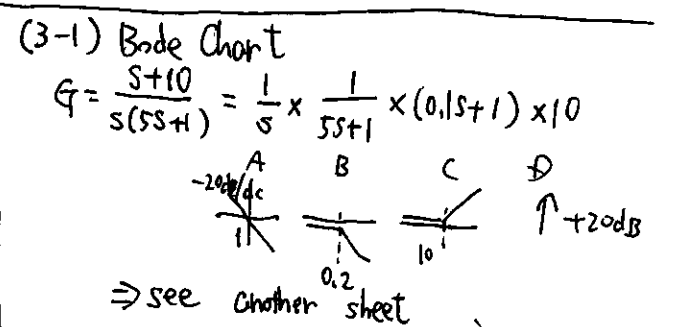 (3-1) Bode Chart
G = S+10 / S(5S+1) = 1/S × 1/5S+1 × (0.1S+1) × 10
A B C D
-20dB/dc
1 0.2 10 ↑+20dB
⇒ see another sheet